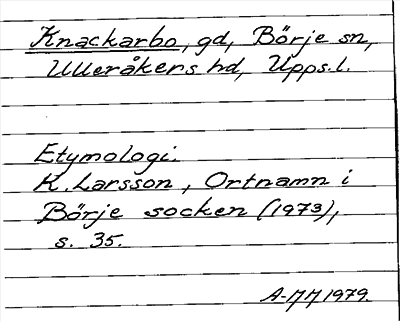 Knackarbo, gd, Börje sn,
Ulleråkers hd, Upps.l.
Etymologi.
K. Larsson, Ortnamn i
Börje socken (1973),
s. 35.
1979.